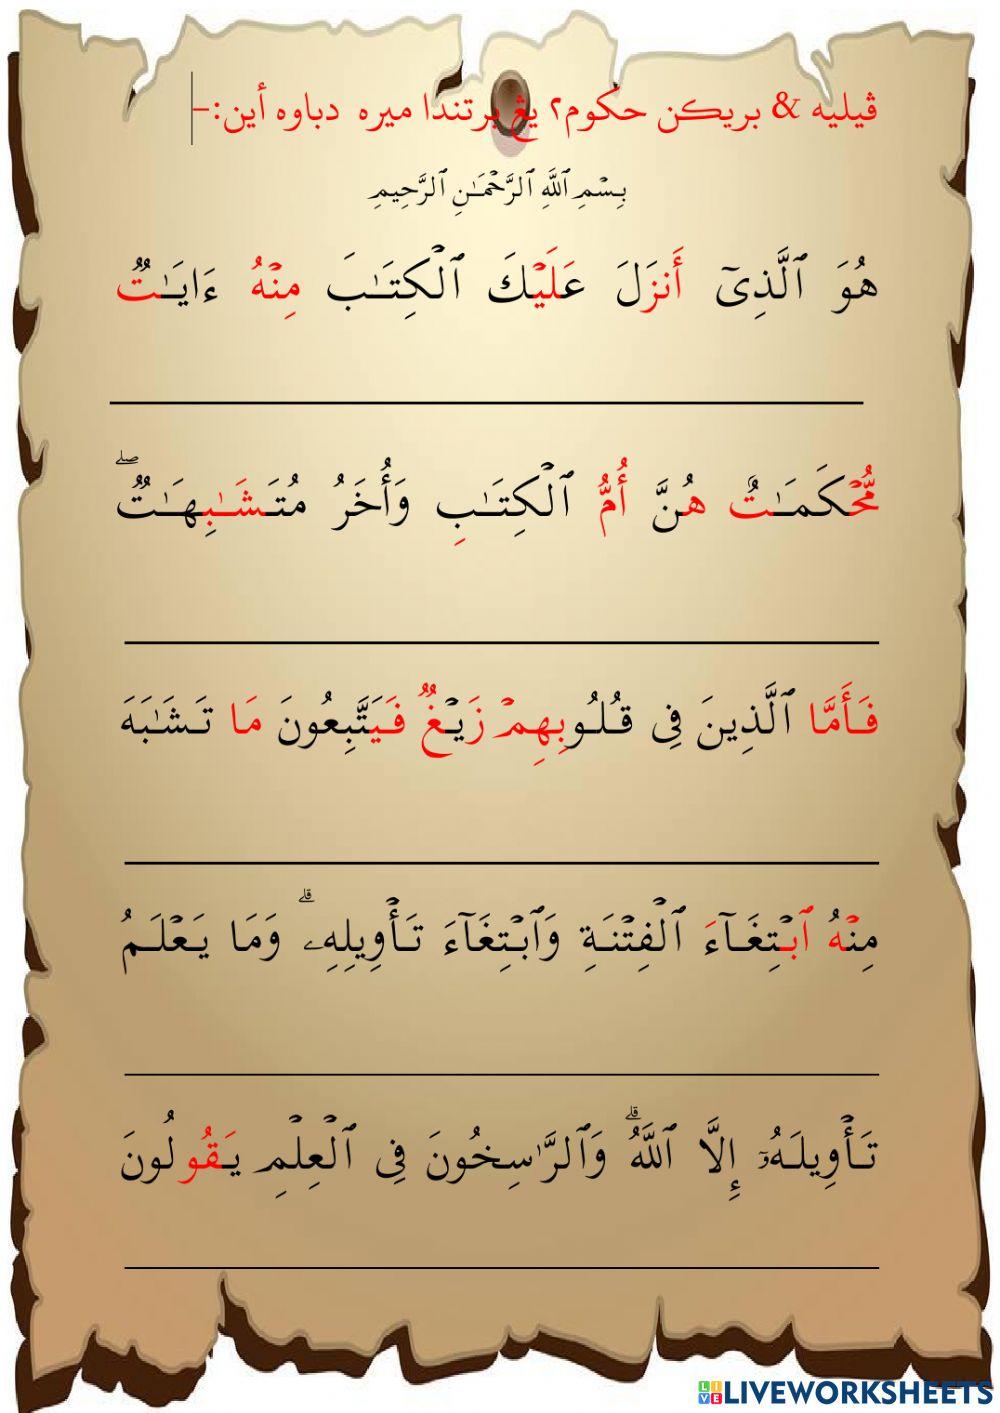 ڤيليه & بريكن حكوم٢ يڠ برتندا ميره دباوه أين:-
بِسْمِ ٱللَّهِ ٱلرَّحْمَـٰنِ ٱلرَّحِيمِ
هُوَ ٱلَّذِىٓ أَنزَلَ عَلَيْكَ ٱلْكِتَـٰبَ مِنْهُ ءَايَـٰتٌ
مُّحْكَمَـٰتٌ هُنَّ أُمُّ ٱلْكِتَـٰبِ وَأُخَرُ مُتَشَـٰبِهَـٰتٌ ۖ
فَأَمَّا ٱلَّذِينَ فِى قُلُوبِهِمْ زَيْغٌ فَيَتَّبِعُونَ مَا تَشَـٰبَهَ
مِنْهُ ٱبْتِغَآءَ ٱلْفِتْنَةِ وَٱبْتِغَآءَ تَأْوِيلِهِۦ ۗ وَمَا يَعْلَمُ
تَأْوِيلَهُۥٓ إِلَّا ٱللَّهُ ۗ وَٱلرَّٰسِخُونَ فِى ٱلْعِلْمِ يَقُولُونَ
LIVEWORKSHEETS